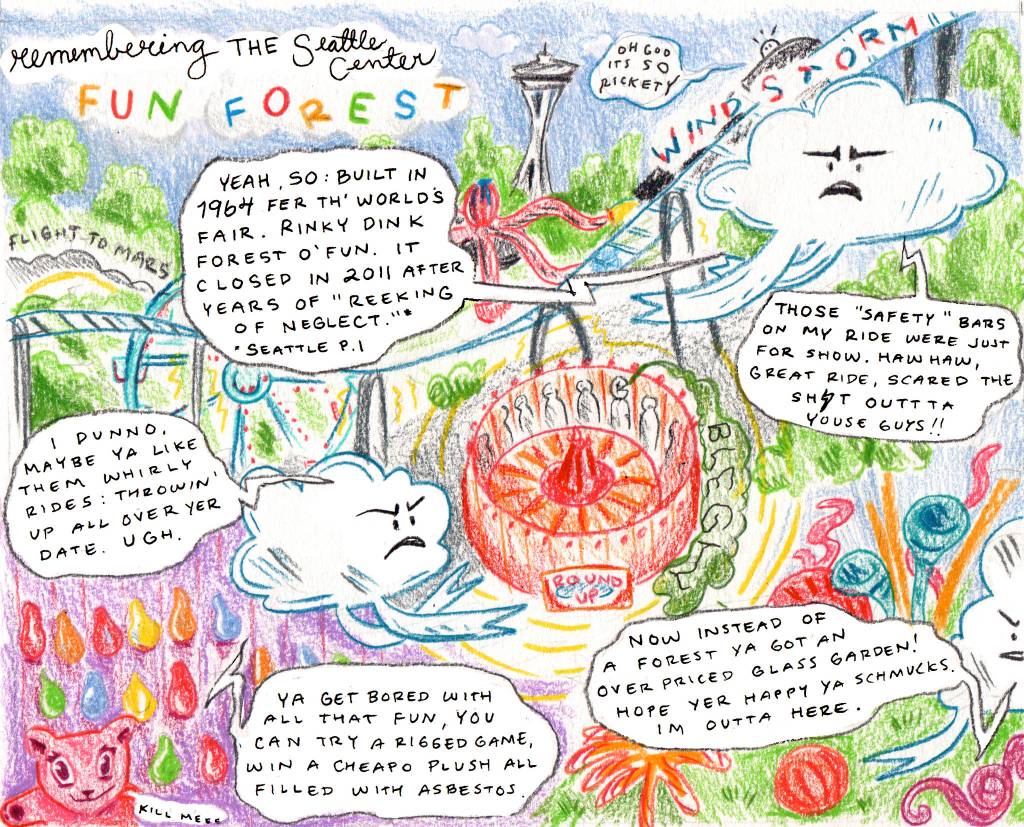 remembering THE Seattle Center
FUN FOREST
OH GOD
ITS SO
RICKETY
WINDSTORM
YEAH, SO: BUILT IN
1964 FER TH' WORLD'S
FAIR. RINKY DINK
FOREST O'FUN. IT
CLOSED IN 2011 AFTER
YEARS OF "REEKING
OF NEGLECT."*
*SEATTLE P.I
FLIGHT TO MARS
THOSE "SAFETY" BARS
ON MY RIDE WERE JUST
FOR SHOW. HAW HAW,
GREAT RIDE, SCARED THE
SH⚡T OUTTTA
YOUSE GUYS!!
I DUNNO,
MAYBE YA LIKE
THEM WHIRLY
RIDES: THROWIN'
UP ALL OVER YER
DATE. UGH.
BLEGH
ROUND
UP
NOW INSTEAD OF
A FOREST YA GOT AN
OVERPRICED GLASS GARDEN!
HOPE YER HAPPY YA SCHMUCKS.
IM OUTTA HERE.
YA GET BORED WITH
ALL THAT FUN, YOU
CAN TRY A RIGGED GAME,
WIN A CHEAPO PLUSH ALL
FILLED WITH ASBESTOS.
KILL MEEE